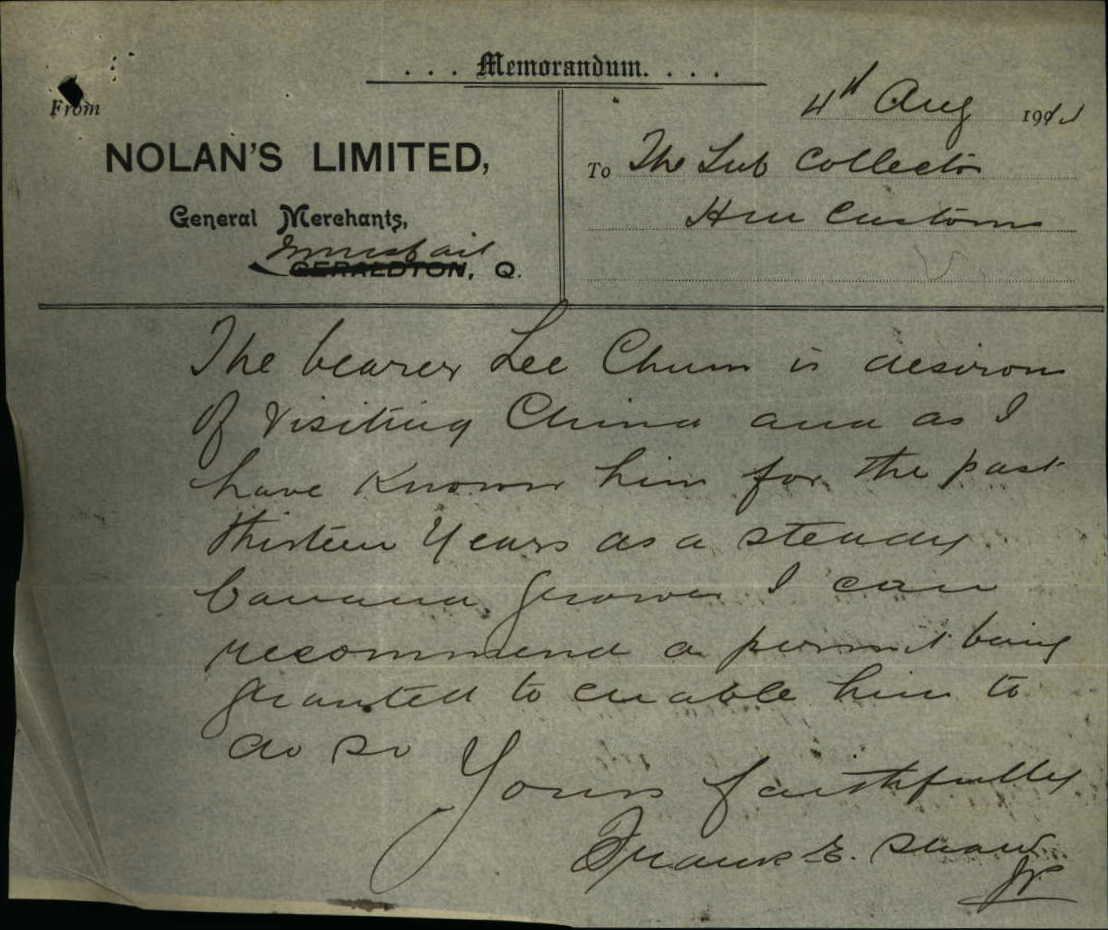 ... Memorandum. ...
From
4th Aug 191
NOLAN'S LIMITED,
To The Sub Collector
General Merchants,
H M Customs
Innisfail
GERALDTON, Q.
The bearer Lee Chum is desirous
of visiting China and as I
have Known him for the past
thirteen Years as a steady
banana grower I can
recommend a permit being
granted to enable him to
do so
Yours faithfully
Frank E. Shaw
JP